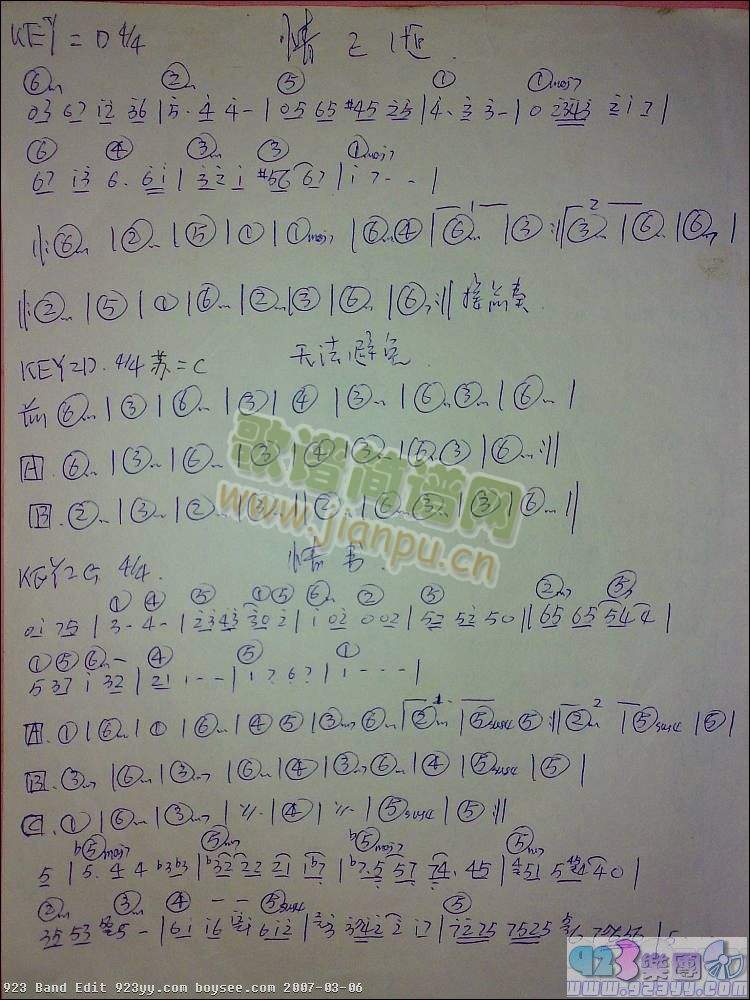 KEY=D 4/4 情之迷.
⑥m ② m ⑤ ① ①maj7
03 67 12 36 | 5· 4 4 - | 05 65 #45 23 | 4· 3 3 - | 0 2343 2 1 7 |
⑥ ④ ③m ③ ①maj7
67 13 6· 61 | 3 2 1 #56 67 | 1 7 - - |
‖: ⑥m | ②m | ⑤ | ① | ①maj7 | ⑥m ④ | ⑥m | ③ :‖ ③m | ⑥m | ⑥m7 |
‖: ②m | ⑤ | ① | ⑥m | ②m | ③ | ⑥m | ⑥m7 :‖
KEY=D. 4/4 苏=C 无法避免
前 ⑥m | ③ | ⑥m | ③ | ④ | ③m | ⑥m ③m | ⑥m |
A. ⑥m | ③m | ⑥m | ③ | ④ | ③m | ⑤ ③ | ⑥m :‖
B. ②m | ③m | ②m | ③m | ②m | ⑥m ③m | ③ | ⑥m ‖
歌谱简谱网
www.jianpu.cn
KEY=G 4/4. 情书.
① ④ ⑤ ① ⑤ ⑥m ② ⑤ ②m7 ⑤
01 75 | 3 - 4 - | 2343 30 2 | 1 02 002 | 52 52 50 ‖ 65 65 54 4 |
① ⑤ ⑥m ④ ⑤ ①
5 37 1 32 | 21 1 - - | 1 7 6 7 | 1 - - - |
A. ① | ⑥m | ① | ⑥m | ④ ⑤ | ③m7 ⑥m | ②m | ⑤sus4 ⑤ :‖ ②m | ⑤sus4 | ⑤ |
B. ③m7 | ⑥m | ③m7 | ⑥m | ④ | ③m7 ⑥m | ④ | ⑤sus4 | ⑤ |
C. ① | ⑥m | ③m7 | ٪ | ④ | ٪ | ⑤sus4 | ⑤ :‖
b⑤maj7 ⑤m7 b⑤maj7 ⑤m7
5 | 5· 4 4 b3b3 | b32 22 21 1b7 | b7·5 57 74· 45 |
②m ③m ④ - - ⑤sus4 ⑤
35 53 5 - | 61 16 1 612 | 3 3 342 2 17 | 7225 7525
923 Band Edit 923yy.com boysee.com 2007-03-06
923樂團
www.923yy.com